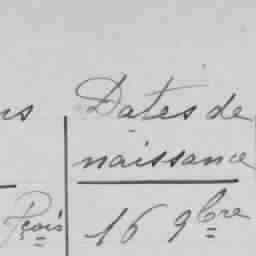 Dates de
naissance
Fçois 16 9bre